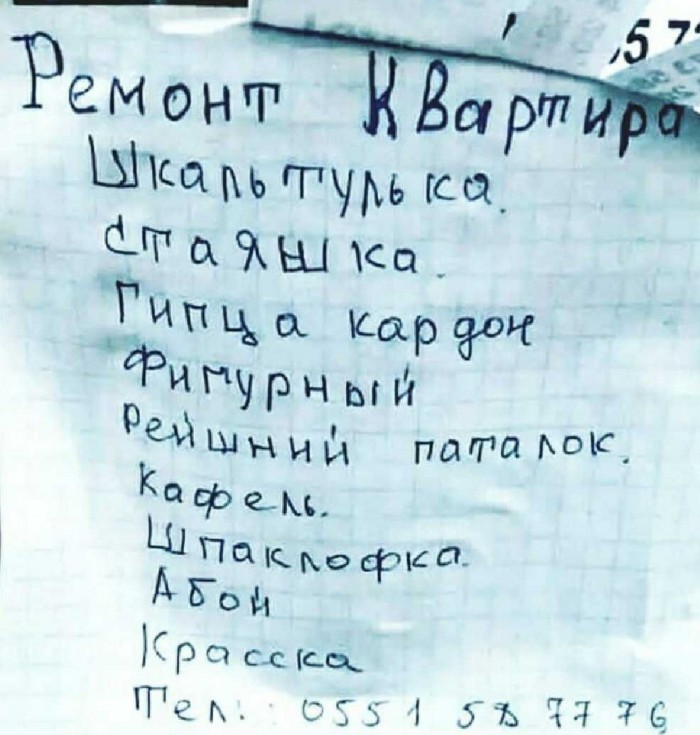 ,5 7
Ремонт Квартира
Шкальтулька.
Стаяшка.
Гипца кардон
Фигурный
Рейшний паталок.
Кафель.
Шпаклофка.
Абой
Красска
Тел.: 0551 58 77 76